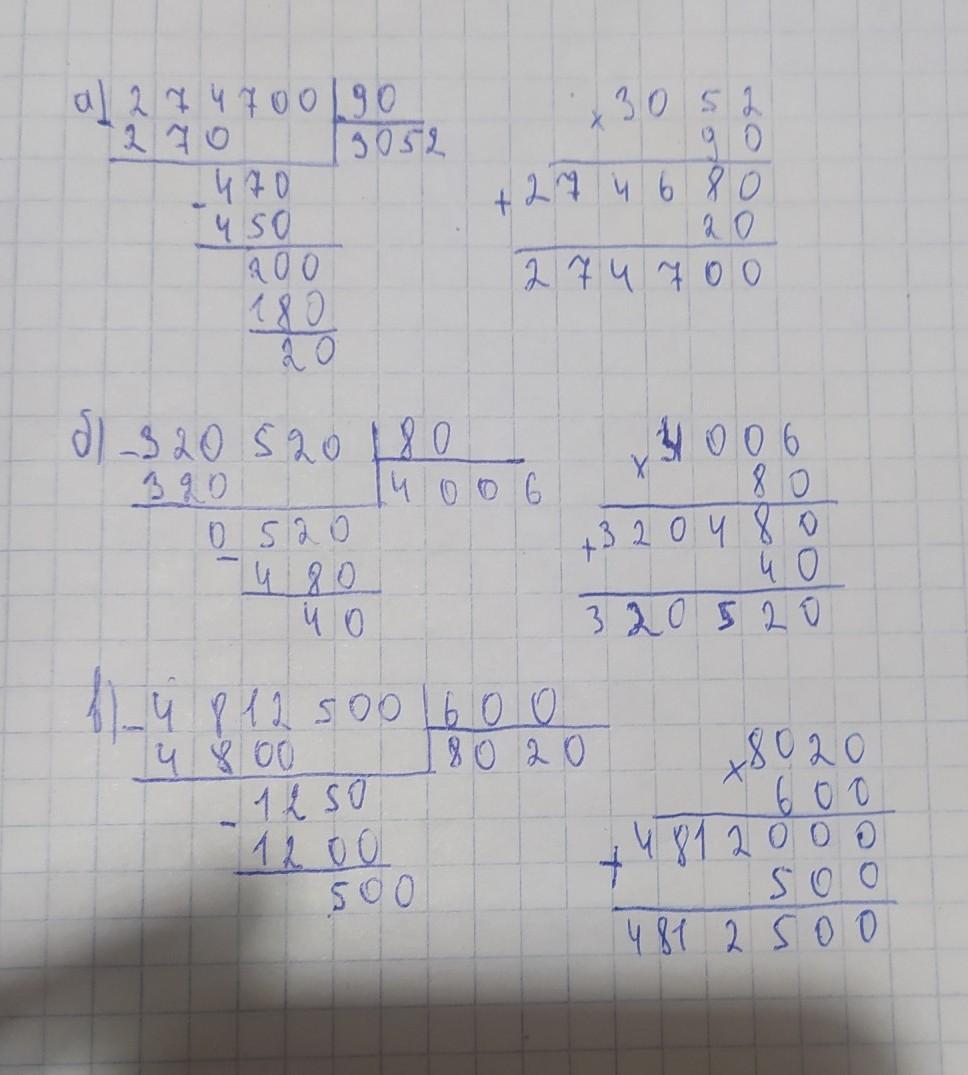 а) - 274700 | 90
270 | 3052
- 470
450
200
180
20
× 3052
90
+ 274680
20
274700
б) - 320520 | 80
320 | 4006
0520
- 480
40
× 4006
80
+ 320480
40
320520
в) - 4812500 | 600
4800 | 8020
- 1250
1200
500
× 8020
600
+ 4812000
500
4812500